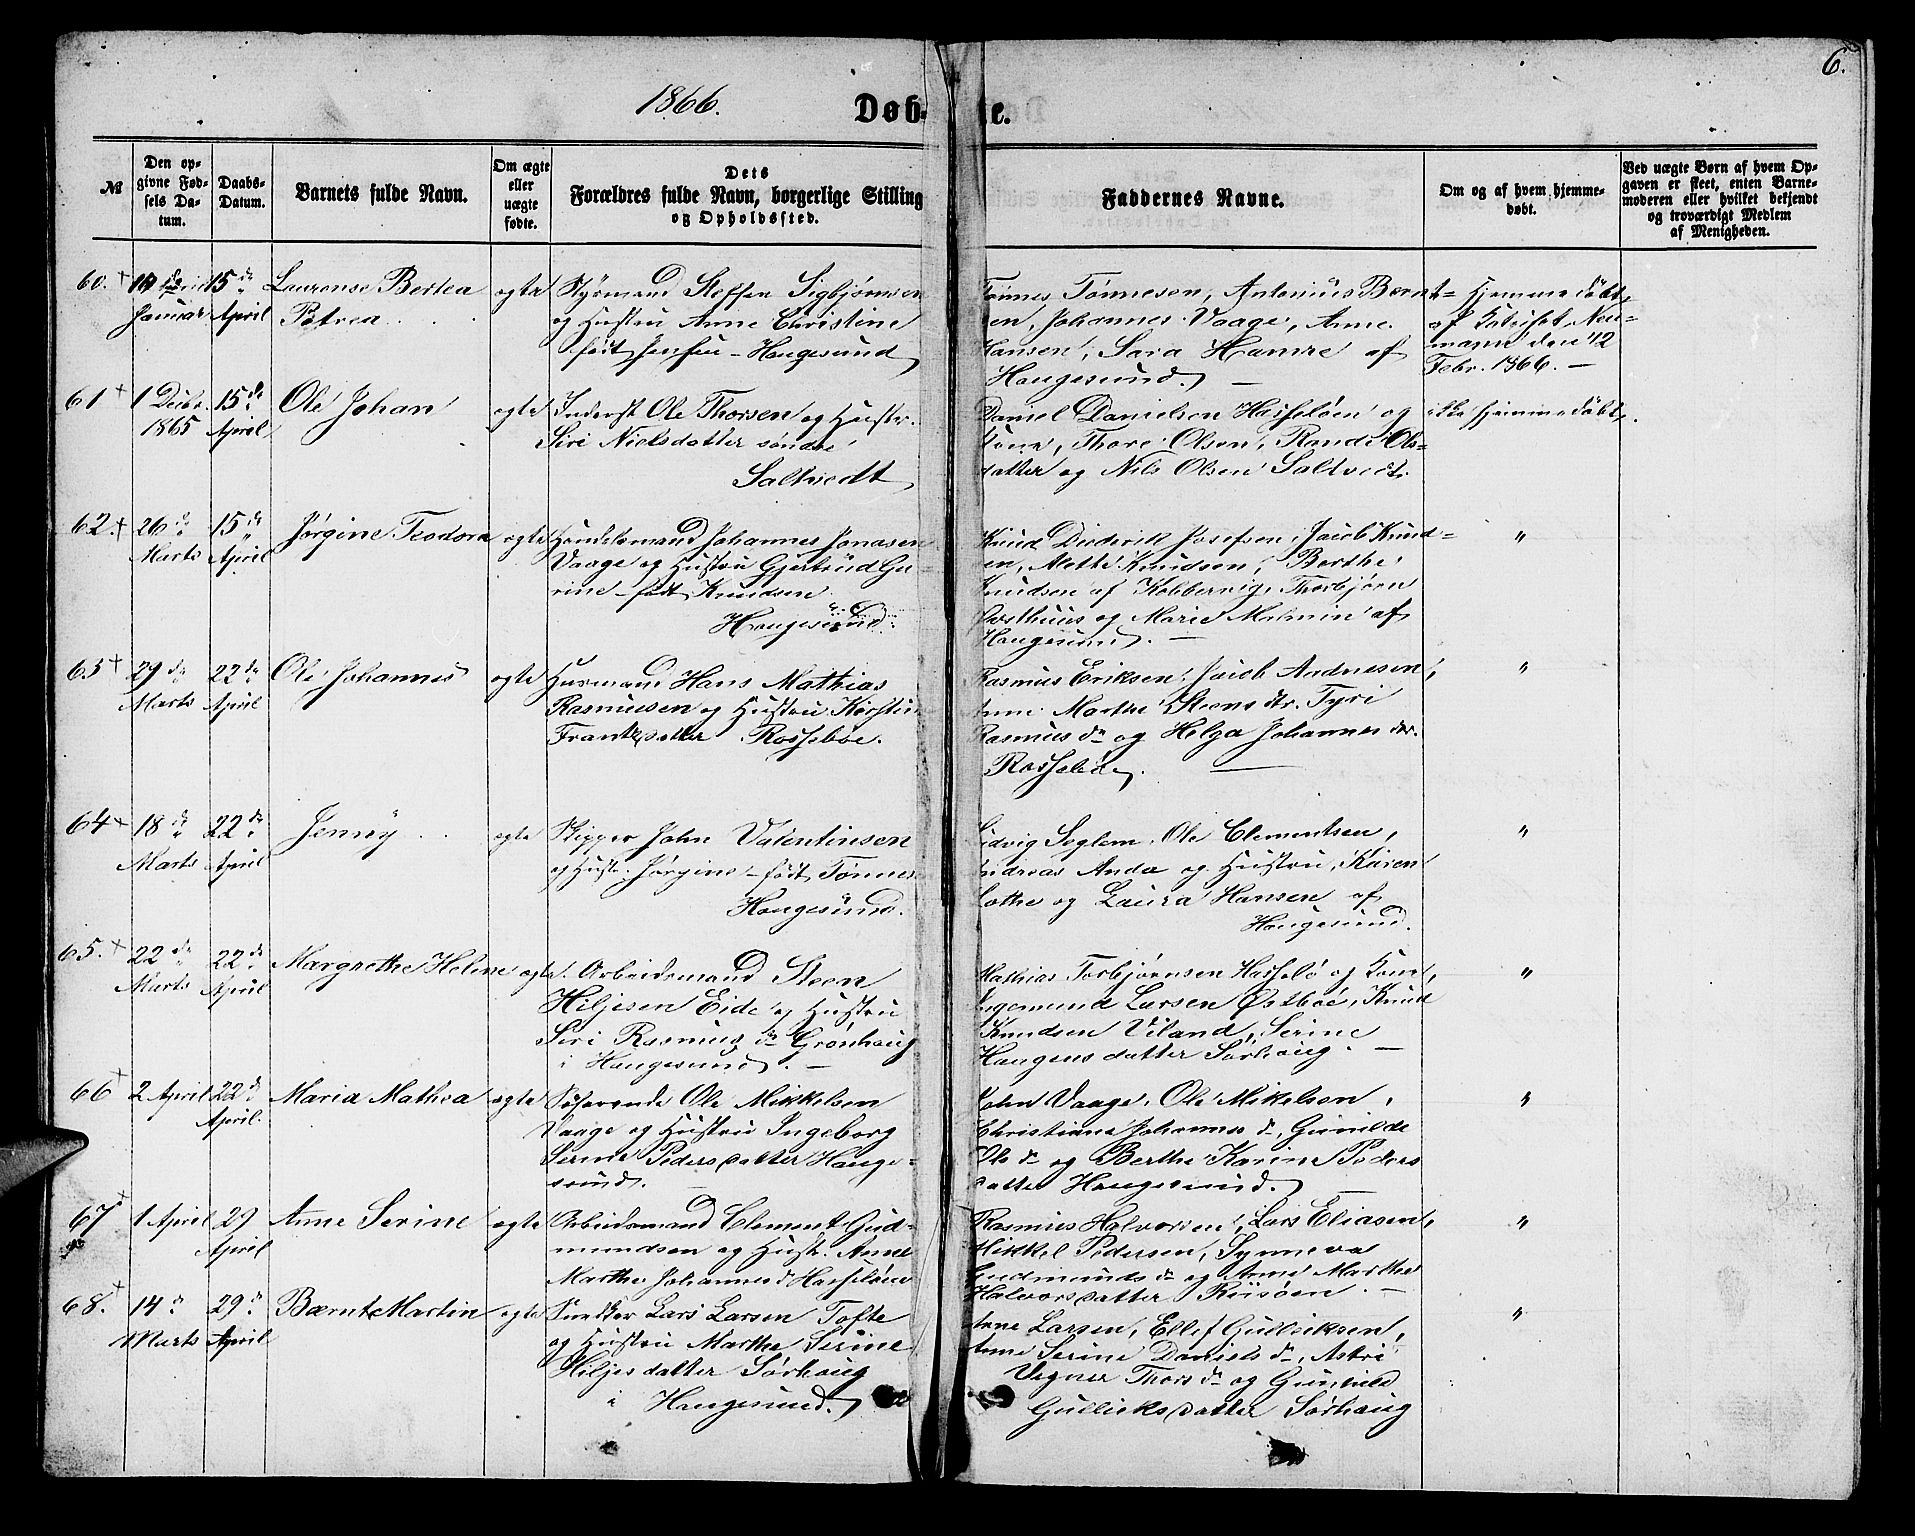 6.
1866.
Døb- te.
№
Den op-
givne Fød-
sels Da-
tum.
Daabs-
Datum.
Barnets fulde Navn.
Om ægte
eller
uægte
fødte.
Dets
Forældres fulde Navn, borgerlige Stilling
og Opholdssted.
Faddernes Navne.
Om og af hvem hjemme-
døbt.
Ved uægte Børn af hvem Op-
gaven er skeet, enten Barne-
moderen eller hvilket bekjendt
og troværdigt Medlem
af Menigheden.
60.
Januar
15 de
April
Laurense Bertea
Petrea
ogte
Styrmand Steffen Sigbjørnsen
og Hustru Anne Christine
født Jensen – Haugesund
Tønnes Tønnesen, Antonius Bernt-
sen, Johannes Vaage, Anne
Hansen, Sara Hamre af
Haugesund. –
Hjemmedøbt
af Katechet Neu-
mann den 12
Febr. 1866. –
61
1 Decbr.
1865
15 de
April
Ole Johan
ogte
Inderst Ole Thorsen og Hustr.
Siri Nielsdatter søndre
Saltvedt
Daniel Danielsen Hasseløen og
Kone, Thore Olsen, Randi Ols-
datter og Nils Olsen Saltvedt.
ikke hjemmedøbt.
62.
26 de
Marts
15 de
April
Jørgine Teodora
ogte
Handelsmand Johannes Jonasen
Vaage og Hustru Gjertrud Gu-
rine – født Knudsen
Haugesund.
Knud Diderik Josefsen, Jacob Knud-
sen, Mette Knudsen, Berthe
Knudsen af Kobbervig, Thorbjørn
Posthuus og Marie Malmin af
Haugesund. –
"
63
29 de
Marts
22 de
April
Ole Johannes
ogte
Huusmand Hans Mathias
Rasmussen og Hustru Kirstin
Frantzdatter Rossebøe.
Rasmus Eriksen, Jacob Andresen,
Anne Marthe Steens dtr. Tyri
Rasmus dr og Helga Johannes dtr.
Rossebøe.
"
64
18 de
Marts
22 de
April
Jenny
ogte
Skipper John Valentinsen
og Hustr. Jørgine – født Tønnes
Haugesund.
Ludvig Seglem, Ole Clementsen,
Andreas Anda og Hustru, Karen
Lothe og Laura Hansen af
Haugesund.
"
65.
22 de
Marts
22 de
April
Margrethe Heline
ogte.
Arbeidsmand Steen
Hiljesen Eide og Hustru
Siri Rasmus dr Grønhaug
i Haugesund. –
Mathias Torbjørnsen Hasselø og Kone,
Ingemund Larsen Østbøe, Knud
Knudsen Viland, Serine
Haugens datter Sørhaug. –
"
66
2 April
22 de
April.
Maria Mathea
ogte
Søfarende Ole Mikkelsen
Vaage og Hustru Ingeborg
Serine Pedersdatter Hauge-
sund. –
John Vaage, Ole Mikelsen,
Christiane Johannes dr, Gunilde
Ols dr og Berthe Karine Peders
datter Haugesund.
"
67
1 April
29
April
Anne Serine
ogte
Arbeidsmand Clement Gud-
mundsen og Hustr. Anne
Marthe Johannes d Hasseløen
Rasmus Halvorsen, Lars Eliasen,
Mikkel Pedersen, Synneva
Gudmunds dr og Anne Marthe
Halvorsdatter Riisøen. –
"
68.
14 d
Marts
29 d
April
Bærnt Martin
ogte
Snedker Lars Larsen Tofte
og Hustru Marthe Serine
Hiljesdatter Sørhaug
i Haugesund.
Arne Larsen, Ellef Gulleiksen,
Anne Serine Daniels dr, Astri
Vegner Thors dr og Gunild
Gullieksdatter Sørhaug
"